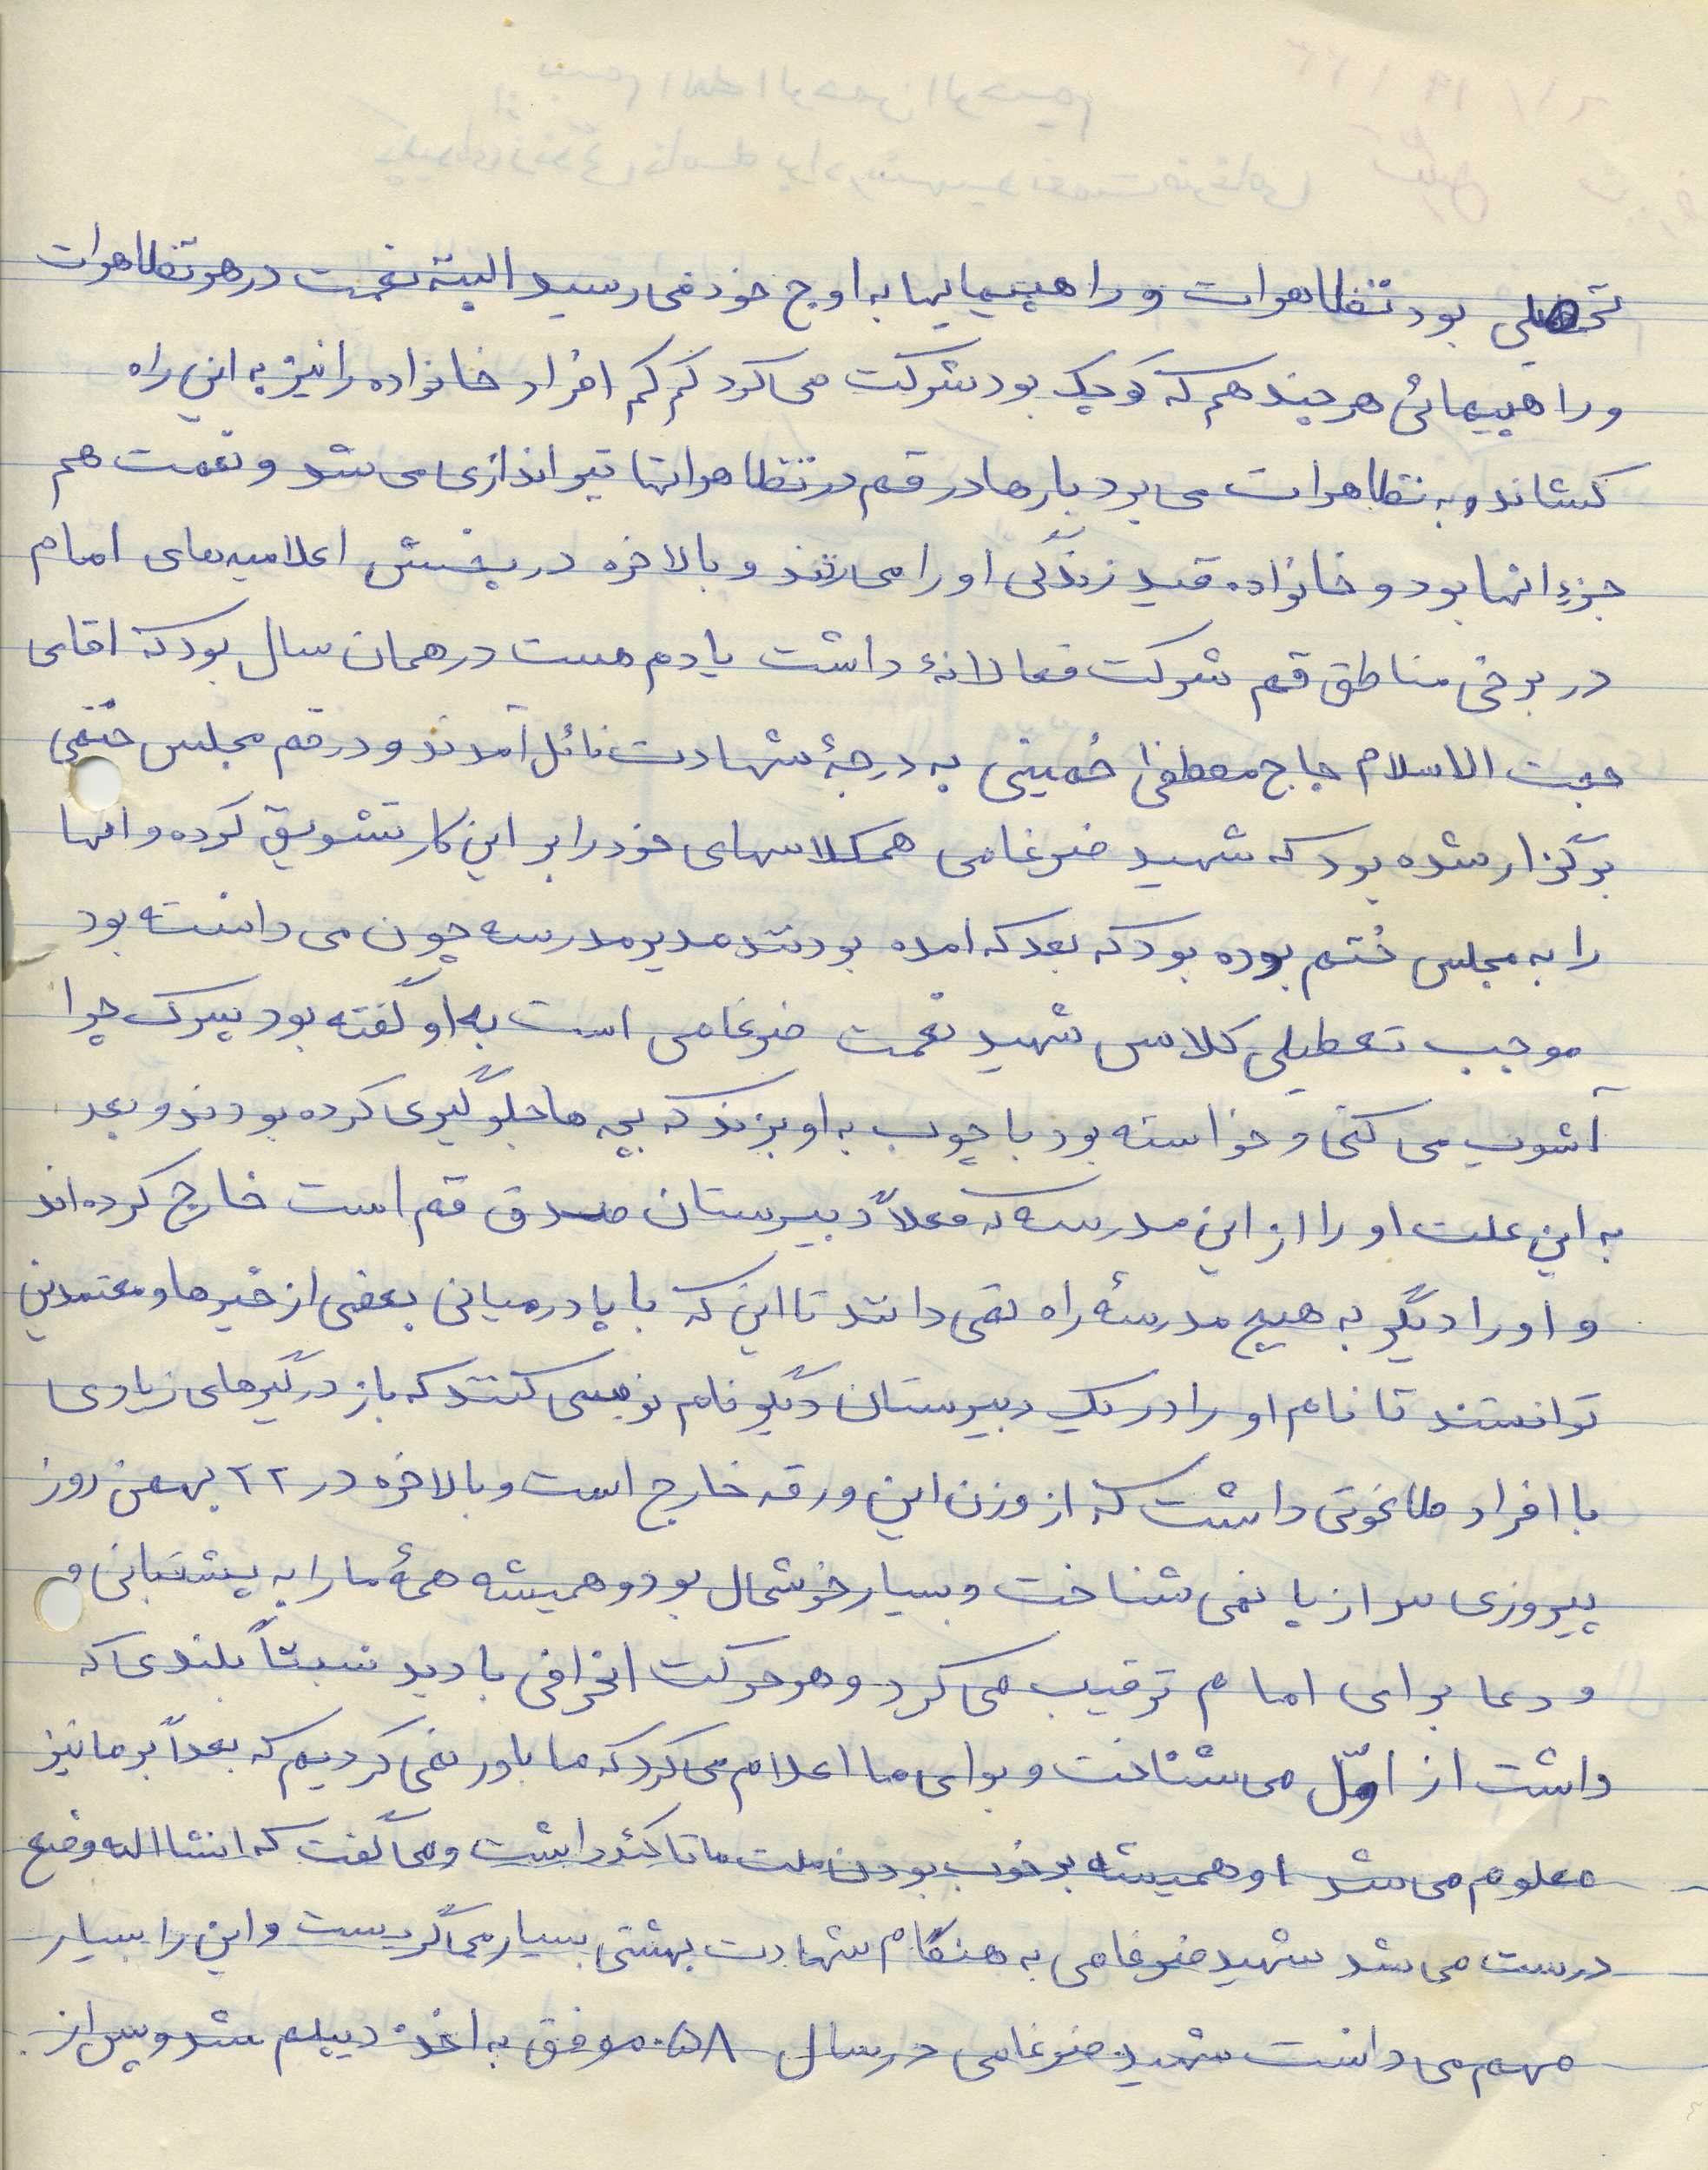 تحصیلی بود تظاهرات و راهپیمایها به اوج خود می رسید البته نعمت در هر تظاهرات
و راهپیمائی هر چند هم که کوچک بود شرکت می کرد کم کم افراد خانواده را نیز به این راه
کشاند و به تظاهرات می برد بارها در قم در تظاهراتها تیراندازی می شد و نعمت هم
جزء انها بود و خانواده قید زندگی او را می زدند و بالاخره در پخش اعلامیه های امام
در برخی مناطق قم شرکت فعالانهٔ داشت یادم هست در همان سال بود که اقای
حجت الاسلام حاج مصطفیٰ خمینی به درجهٔ شهادت نائل آمدند و در قم مجلس ختمی
برگزار شده بود که شهید ضرغامی همکلاسهای خود را بر این کار تشویق کرده و انها
را به مجلس ختم برده بود که بعد که امده بودند مدیر مدرسه چون می دانسته بود
موجب تعطیلی کلاس شهید نعمت ضرغامی است به او گفته بود پسرک چرا
آشوب می کنی و خواسته بود با چوب به او بزند که بچه ها جلوگیری کرده بودند و بعد
به این علت او را از این مدرسه که فعلاً دبیرستان صدق قم است خارج کرده اند
و او را دیگر به هیچ مدرسهٔ راه نمی دانند تا این که با پا در میانی بعضی از خیرها و معتمدین
توانستند تا نام او را در یک دبیرستان دیگر نام نویسی کنند که باز درگیرهای زیادی
با افراد طاغوتی داشت که از وزن این ورقه خارج است و بالاخره در ۲۲ بهمن روز
پیروزی سر از پا نمی شناخت و بسیار خوشحال بود و همیشه همهٔ ما را به پشتبانی و
و دعا برای امام ترقیب می کرد و هر حرکت انحرافی با دید نسبتاً بلندی که
داشت از اوّل می شناخت و برای ما اعلام می کرد که ما باور نمی کردیم که بعداً بر ما نیز
معلوم می شد او همیشه بر خوب بودن ملت ما تاکئد داشت و می گفت که انشاالله وضع
درست می شد شهید ضرغامی به هنگام شهادت بهشتی بسیار می گریست و این را بسیار
مهم می دانست شهید ضرغامی در سال ۵۸ موفق به اخذ دیپلم شد و پس از